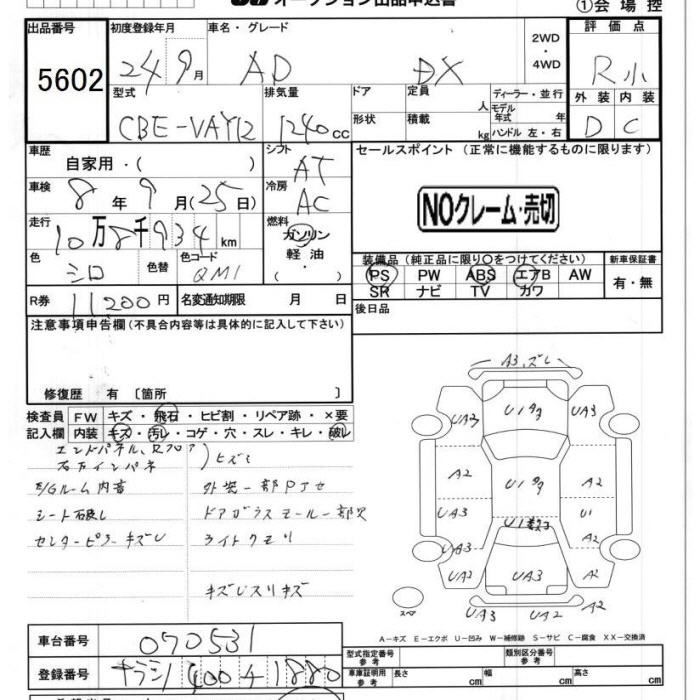 オークション出品申込書 ①会場控
出品番号 初度登録年月 車名・グレード 2WD ・ 4WD 評価点
5602 24 9月 AD DX R小
型式 排気量 ドア 定員 人 ディーラー・並行 外装 内装
CBE-VAY12 1240cc 形状 積載 kg モデル年式 年 ハンドル 左・右 D C
車歴 自家用・( ) シフト AT セールスポイント (正常に機能するものに限ります)
車検 8年9月(25日) 冷房 AC NOクレーム・売切
走行 10万8千934km 燃料 ガソリン・軽油・( )
装備品(純正品に限り○をつけてください) 新車保証書
色 シロ 色替 色コード QM1 PS PW ABS エアB AW 有・無
SR ナビ TV カワ
R券 11200円 名変通知期限 月 日 後日品
注意事項申告欄(不具合内容等は具体的に記入して下さい)
修復歴 有 〔箇所 〕
検査員 FW キズ・飛石・ヒビ割・リペア跡・×要
記入欄 内装 キズ・汚レ・コゲ・穴・スレ・キレ・破レ
エンドパネル、Rフロア
右方インパネ )ヒズミ
E/Gルーム内音 外装一部Pアセ
シート破レ ドアガラスモール一部欠
センターピラーキズU ライトクモリ
キズ
A3、ズレ
UA2 U1タタ UA3
A2 U1タタ A2
UA3 U1 U1
UA3 A2
UA2 UA3 A2
スペア UA3 UA2 A3
A-キズ E-エクボ U-凹み W-補修跡 S-サビ C-腐食 XX-交換済
車台番号 070531
型式指定番号 参考 類別区分番号 参考
登録番号 ナラシノ400 チ1880
車庫証明用 参考 長さ cm 幅 cm 高さ cm